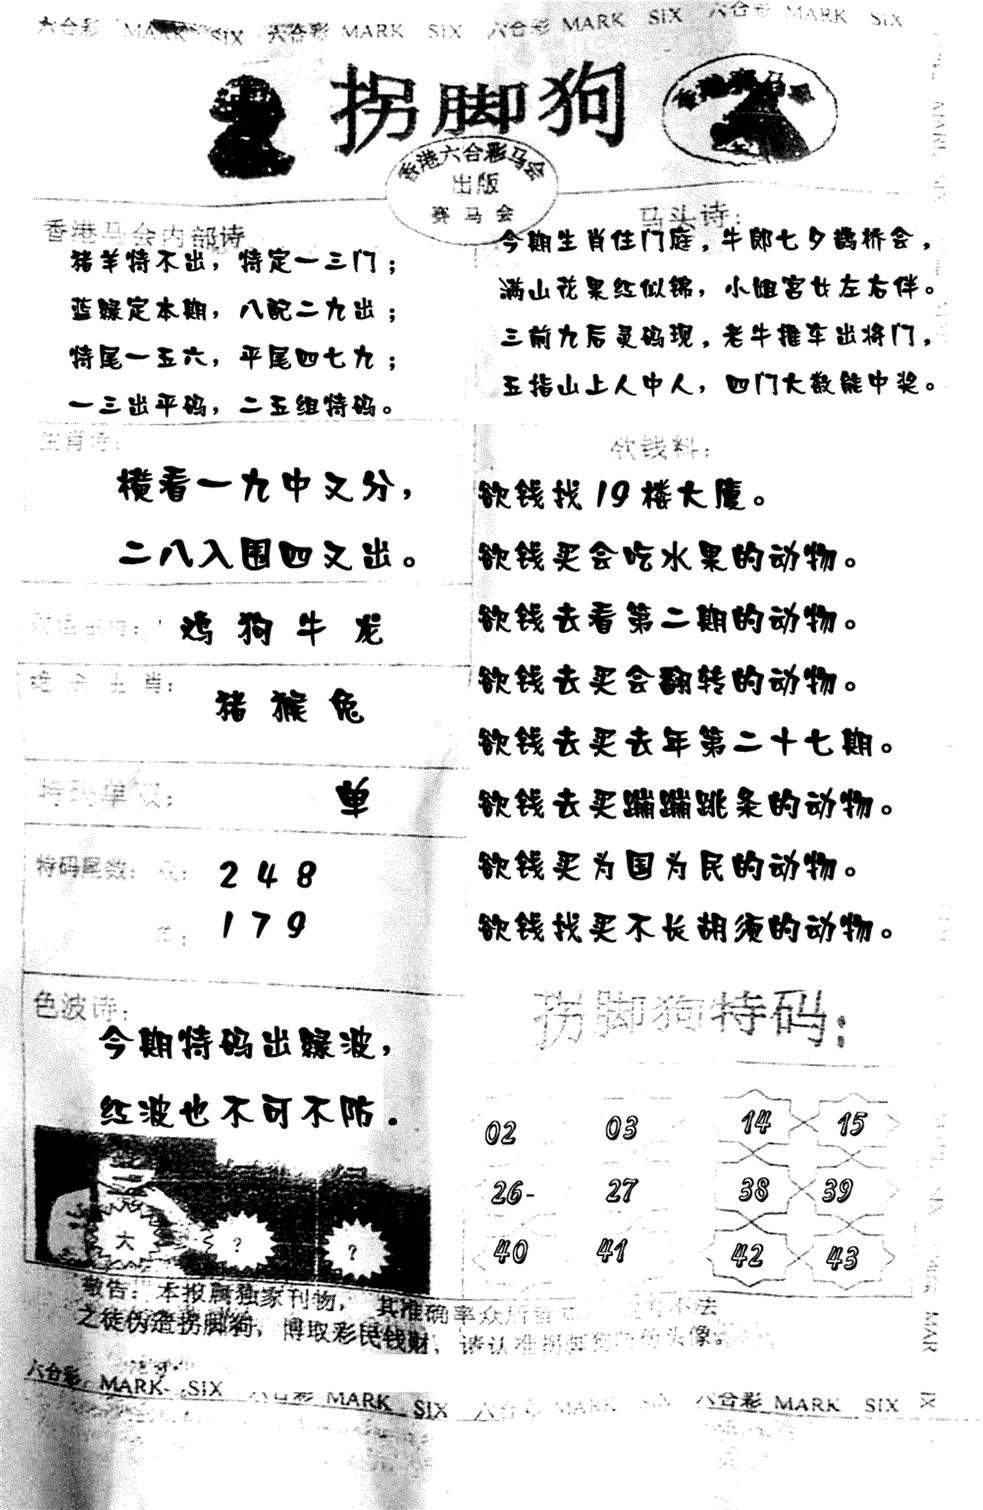 六合彩 MARK SIX 六合彩 MARK SIX 六合彩 MARK SIX 六合彩 MARK SIX
拐脚狗
香港赛马会
香港六合彩马会
出版
赛马会
香港马会内部诗
猪羊特不出，特定一三门；
蓝绿定本期，八配二九出；
特尾一五六，平尾四七九；
一三出平码，二五组特码。
马头诗：
今期生肖住门庭，牛郎七夕鹊桥会，
满山花果红似锦，小姐宫女左右伴。
三前九后灵码现，老牛推车出将门，
五指山上人中人，四门大数能中奖。
生肖诗：
横看一九中又分，
二八入围四又出。
鸡狗牛龙
生肖：
猪猴兔
特码单双：
单
特码尾数：
2 4 8
1 7 9
色波诗：
今期特码出绿波，
红波也不可不防.
大 ? ?
欲钱料：
欲钱找19楼大厦。
欲钱买会吃水果的动物。
欲钱去看第二期的动物。
欲钱去买会翻转的动物。
欲钱去买去年第二十七期。
欲钱去买蹦蹦跳条的动物。
欲钱买为国为民的动物。
欲钱找买不长胡须的动物。
拐脚狗特码：
02 03 14 15
26- 27 38 39
40 41 42 43
敬告：本报属独家刊物，其准确率众所 不法
之徒伪造拐脚狗，博取彩民钱财，请认准拐脚狗 头像。
六合彩 MARK SIX 六合彩 MARK SIX 六合彩 MARK SIX 六合彩 MARK SIX